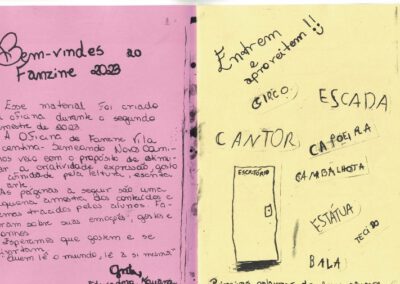 Bem-vindes ao
Fanzine 2023
Esse material foi criado
oficina durante o segundo
mestre de 2023.
A Oficina de Fanzine Vila
centina: Semeando Novos Cami-
veio com o propósito de estimu-
a criatividade, expressão, gosto
pela leitura, escrita
arte.
páginas a seguir são uma
amostra dos conteúdos e
trazidos pelos alunos. Fa-
sobre suas emoções, gostos e
Esperamos que gostem e se
"Quem lê o mundo, lê a si mesmo."
Entrem
e
aproveitem!!
CIRCO
ESCADA
CANTOR
CAPOEIRA
CAMBALHOTA
ESCRITÓRIO
ESTÁTUA
TECIDO
BALA